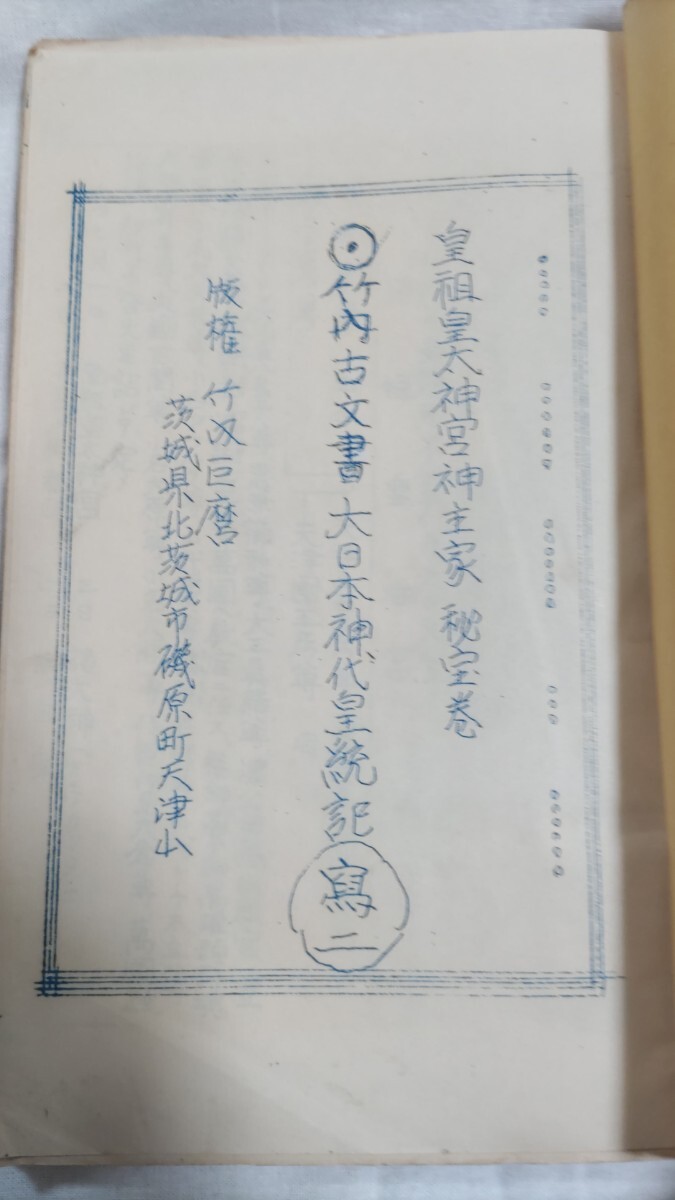 皇祖皇太神宮神主家 秘宝巻
竹内古文書 大日本神代皇統記 寫二
版権 竹内巨麿
茨城県北茨城市磯原町天津山